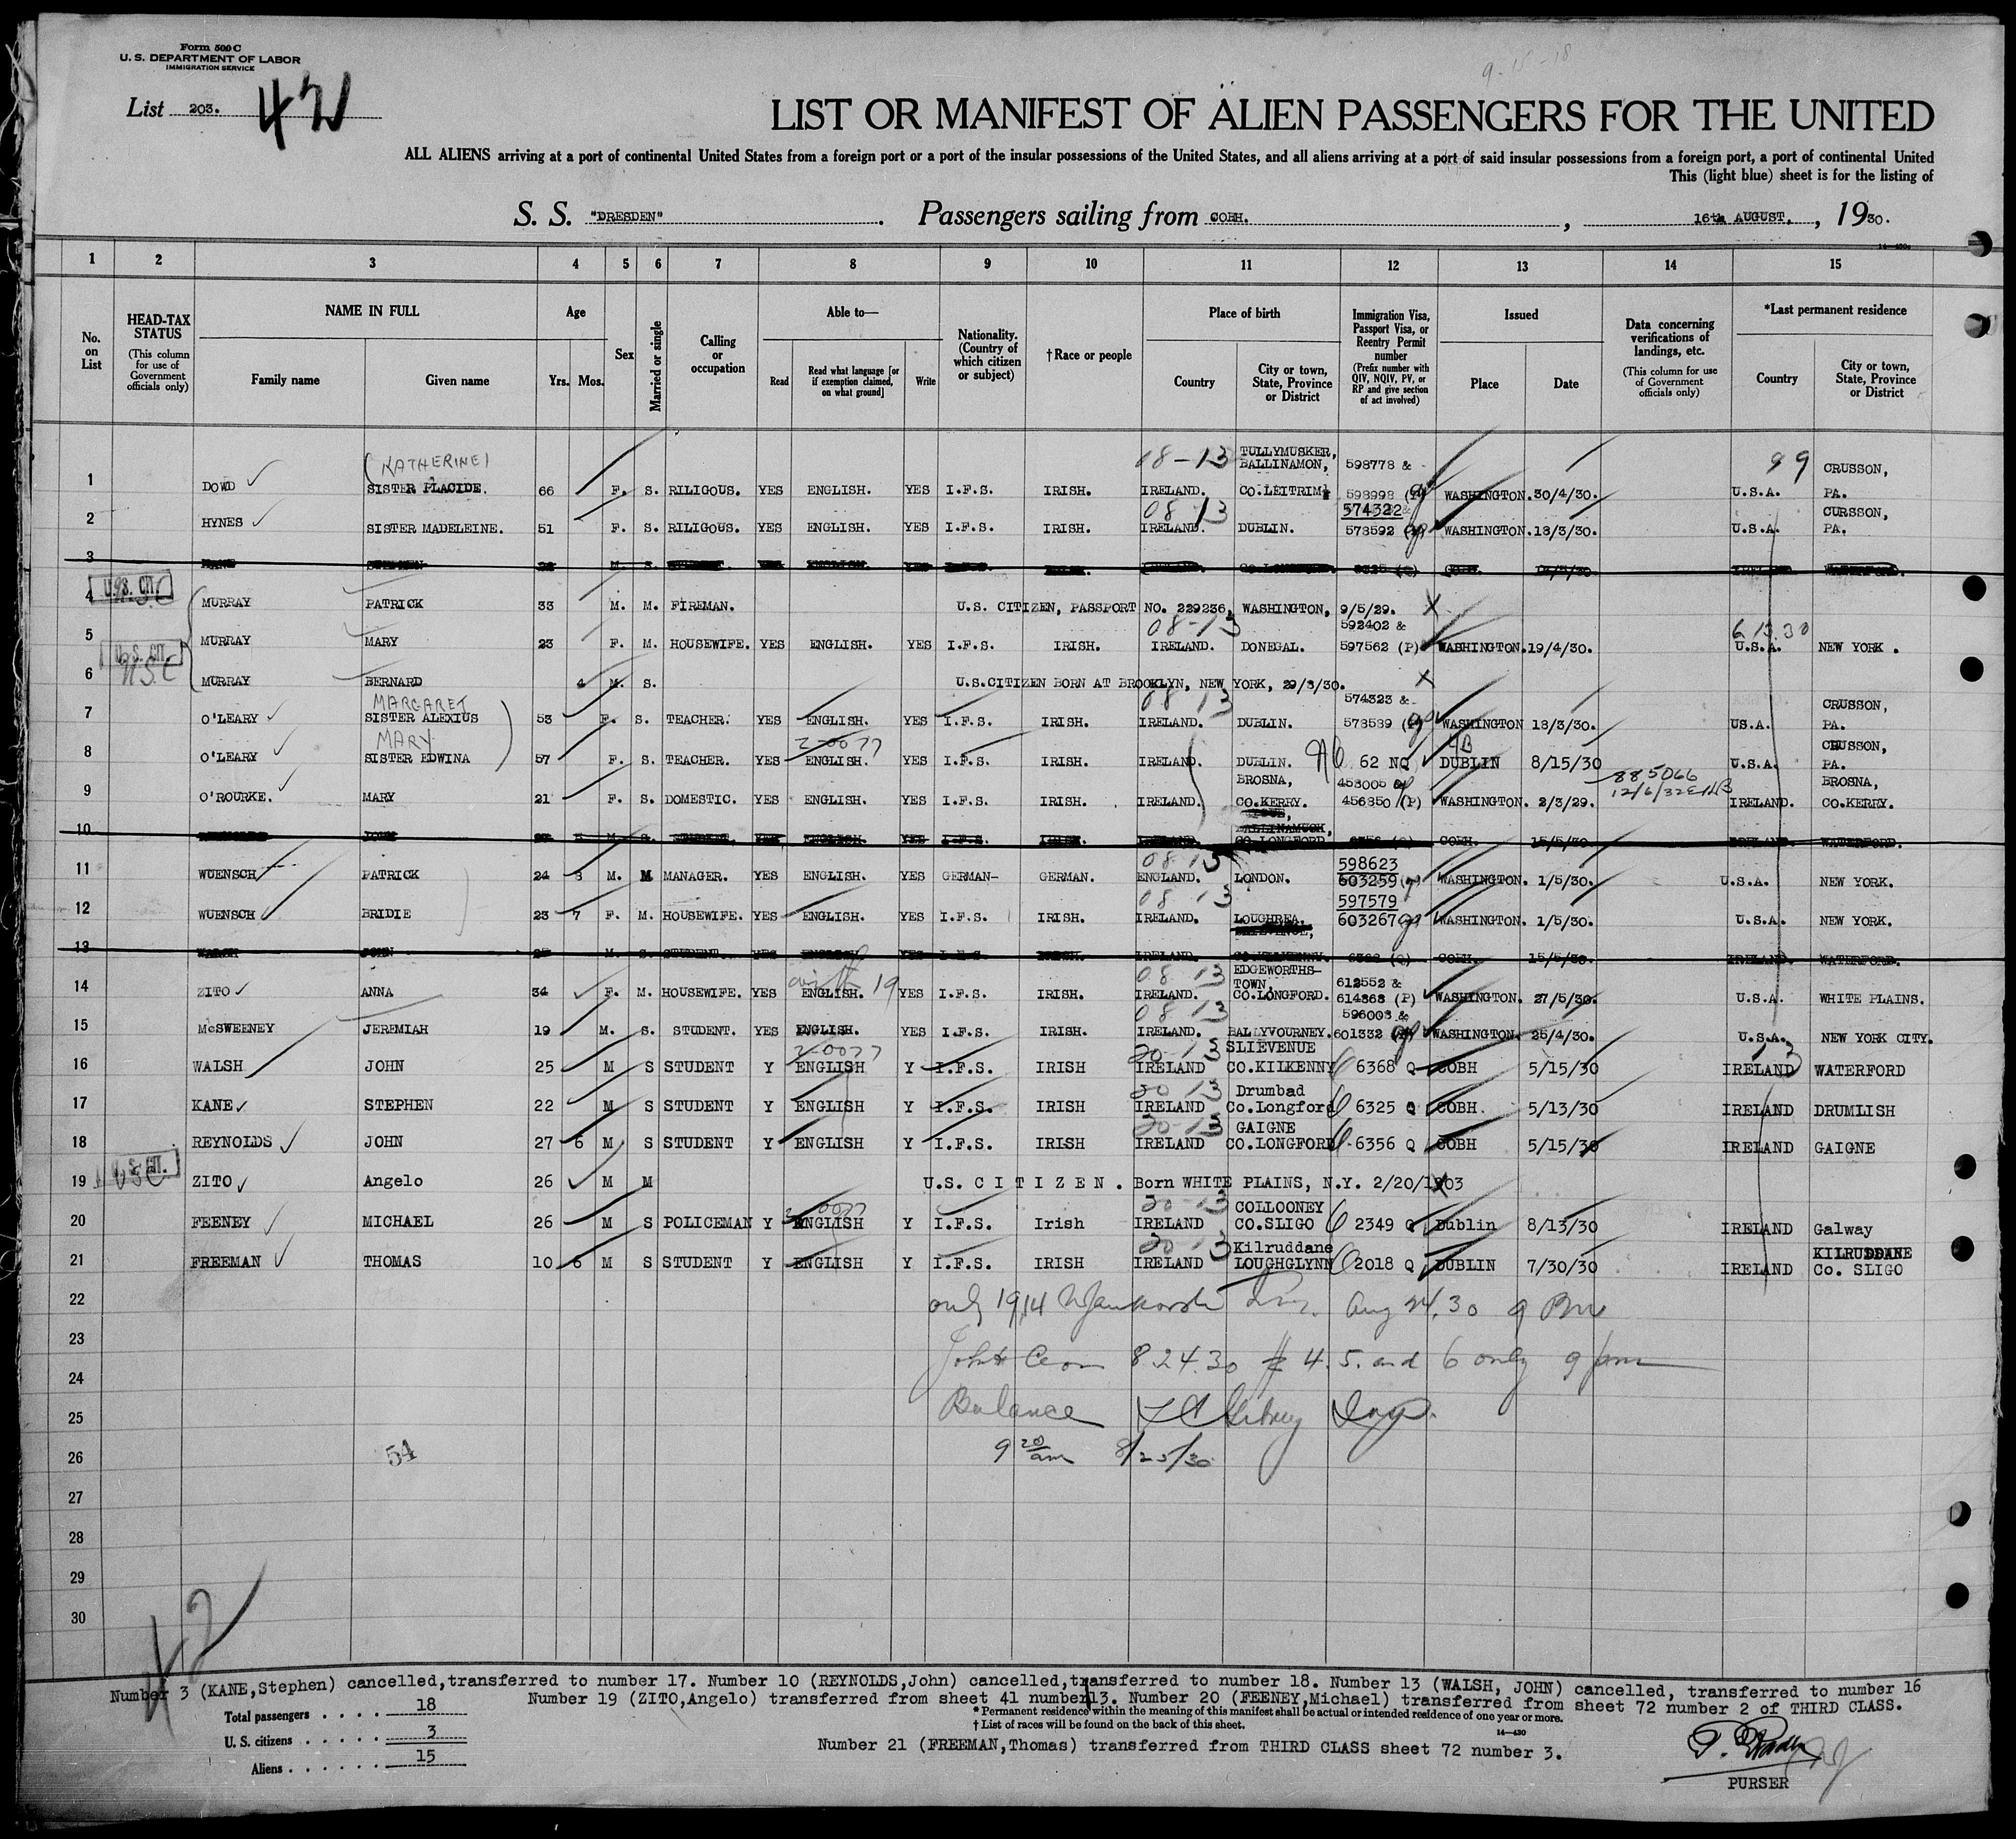 Form 500 C
U. S. DEPARTMENT OF LABOR
IMMIGRATION SERVICE
9-15-18
List 203.
42
LIST OR MANIFEST OF ALIEN PASSENGERS FOR THE UNITED
ALL ALIENS arriving at a port of continental United States from a foreign port or a port of the insular possessions of the United States, and all aliens arriving at a port of said insular possessions from a foreign port, a port of continental United
This (light blue) sheet is for the listing of
S. S. "DRESDEN". Passengers sailing from COBH. , 16th AUGUST. , 1930.
1 2 3 4 5 6 7 8 9 10 11 12 13 14 15
No. on List
HEAD-TAX STATUS (This column for use of Government officials only)
NAME IN FULL Family name Given name
Age Yrs. Mos.
Sex
Married or single
Calling or occupation
Able to— Read Read what language [or if exemption claimed, on what ground] Write
Nationality. (Country of which citizen or subject)
†Race or people
Place of birth Country City or town, State, Province or District
Immigration Visa, Passport Visa, or Reentry Permit number (Prefix number with QIV, NQIV, PV, or RP and give section of act involved)
Issued Place Date
Data concerning verifications of landings, etc. (This column for use of Government officials only)
*Last permanent residence Country City or town, State, Province or District
(KATHERINE) 08-13 TULLYMUSKER, BALLINAMON, 598778 & 99 CRUSSON,
1 DOWD SISTER PLACIDE. 66 F. S. RILIGOUS. YES ENGLISH. YES I.F.S. IRISH. IRELAND. CO.LEITRIM 598998 (P) WASHINGTON. 30/4/30. U.S.A. PA.
08 13 574322 & CURSSON,
2 HYNES SISTER MADELEINE. 51 F. S. RILIGOUS. YES ENGLISH. YES I.F.S. IRISH. IRELAND. DUBLIN. 573592 (P) WASHINGTON. 13/3/30. U.S.A. PA.
3
U.S. CIT.
4 MURRAY PATRICK 33 M. M. FIREMAN. U.S. CITIZEN, PASSPORT NO. 229236, WASHINGTON, 9/5/29. X
08-13 592402 & 6 13.30
5 MURRAY MARY 23 F. M. HOUSEWIFE. YES ENGLISH. YES I.F.S. IRISH. IRELAND. DONEGAL. 597562 (P) WASHINGTON. 19/4/30. U.S.A. NEW YORK .
U.S. CIT.
6 MURRAY BERNARD 4 M. S. U.S.CITIZEN BORN AT BROOKLYN, NEW YORK, 29/3/30. X
MARGARET 08 13 574323 & CRUSSON,
7 O'LEARY SISTER ALEXIUS 53 F. S. TEACHER. YES ENGLISH. YES I.F.S. IRISH. IRELAND. DUBLIN. 573589 (P) WASHINGTON 13/3/30. US.A. PA.
MARY 2-0077 CRUSSON,
8 O'LEARY SISTER EDWINA 57 F. S. TEACHER. YES ENGLISH. YES I.F.S. IRISH. IRELAND. DUBLIN. 62 NQ DUBLIN 8/15/30 U.S.A. PA.
BROSNA, 453005 & 885066 BROSNA,
9 O'ROURKE. MARY 21 F. S. DOMESTIC. YES ENGLISH. YES I.F.S. IRISH. IRELAND. CO.KERRY. 456350 (P) WASHINGTON. 2/3/29. 12/6/32 IRELAND. CO.KERRY.
BALLINAMUCK,
10 YES I.F.S. CO.LONGFORD 6356 (Q) COBH. 15/5/30. IRELAND. WATERFORD.
08 13 598623
11 WUENSCH PATRICK 24 3 M. M MANAGER. YES ENGLISH. YES GERMAN- GERMAN. ENGLAND. LONDON. 603259 (P) WASHINGTON. 1/5/30. U.S.A. NEW YORK.
08 13 597579
12 WUENSCH BRIDIE 23 7 F. M. HOUSEWIFE. YES ENGLISH. YES I.F.S. IRISH. IRELAND. LOUGHREA. 603267 WASHINGTON. 1/5/30. U.S.A. NEW YORK.
13 WALSH JOHN 25 M. S. STUDENT. YES ENGLISH YES I.F.S. IRISH. IRELAND. CO.KILKENNY. 6368 (Q) COBH. 15/5/30. IRELAND. WATERFORD.
19 08 13 EDGEWORTHS- TOWN, 612552 &
14 ZITO ANNA 34 F. M. HOUSEWIFE. YES ENGLISH. YES I.F.S. IRISH. IRELAND. CO.LONGFORD. 614363 (P) WASHINGTON. 27/5/30. U.S.A. WHITE PLAINS.
08 13 596003 &
15 McSWEENEY JEREMIAH 19 M. S. STUDENT. YES ENGLISH. YES I.F.S. IRISH. IRELAND. BALLYVOURNEY. 601332 (P) WASHINGTON. 25/4/30. U.S.A. NEW YORK CITY.
2-0077 20-13 SLIEVENUE
16 WALSH JOHN 25 M S STUDENT Y ENGLISH Y I.F.S. IRISH IRELAND CO.KILKENNY 6368 Q COBH 5/15/30 IRELAND WATERFORD
20 13 Drumbad
17 KANE STEPHEN 22 M S STUDENT Y ENGLISH Y I.F.S. IRISH IRELAND Co.Longford 6325 Q COBH. 5/13/30 IRELAND DRUMLISH
20-13 GAIGNE
18 REYNOLDS JOHN 27 6 M S STUDENT Y ENGLISH Y I.F.S. IRISH IRELAND CO.LONGFORD 6356 Q COBH 5/15/30 IRELAND GAIGNE
19 USC ZITO Angelo 26 M M U.S. C I T I Z E N . Born WHITE PLAINS, N.Y. 2/20/1903
20-13 COLLOONEY
20 FEENEY MICHAEL 26 M S POLICEMAN Y ENGLISH Y I.F.S. Irish IRELAND CO.SLIGO 2349 Q Dublin 8/13/30 IRELAND Galway
20-13 Kilruddane KILRUDDANE
21 FREEMAN THOMAS 10 6 M S STUDENT Y ENGLISH Y I.F.S. IRISH IRELAND LOUGHGLYNN 2018 Q DUBLIN 7/30/30 IRELAND Co. SLIGO
22 only 19,14 Aug 24.30 9 Pm
23
24 8 24.30 # 4. 5. and 6 only 9 pm
25 Balance
26 54 9 20 am 8/25/30
27
28
29
30
42
Number 3 (KANE,Stephen) cancelled,transferred to number 17. Number 10 (REYNOLDS,John) cancelled,transferred to number 18. Number 13 (WALSH, JOHN) cancelled, transferred to number 16
Number 19 (ZITO,Angelo) transferred from sheet 41 number 13. Number 20 (FEENEY,Michael) transferred from sheet 72 number 2 of THIRD CLASS.
Total passengers . . . . 18
* Permanent residence within the meaning of this manifest shall be actual or intended residence of one year or more.
† List of races will be found on the back of this sheet.
14—430
U. S. citizens . . . . . 3
Number 21 (FREEMAN,Thomas) transferred from THIRD CLASS sheet 72 number 3.
Aliens . . . . . . 15
PURSER